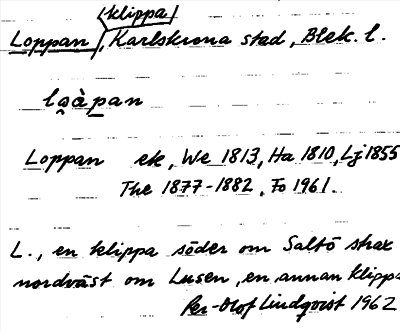 (klippa)
Loppan, Karlskrona stad, Blek. l.
loàpan
Loppan ek, We 1813, Ha 1810, Lj 1855
The 1877-1882, Fo 1961.
L., en klippa söder om Saltö strax
nordväst om Lusen, en annan klippa
Per-Olof Lindqvist 1962